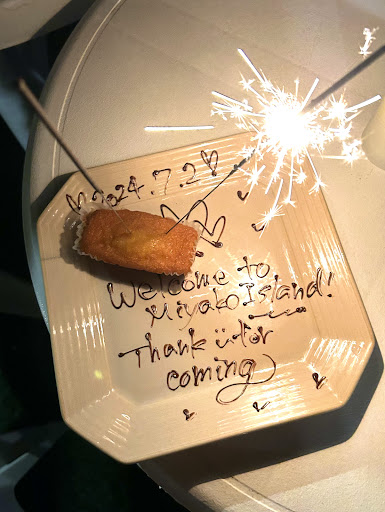 ♥2024.7.2♥
Welcome to
Miyako Island!
Thank ü for
coming